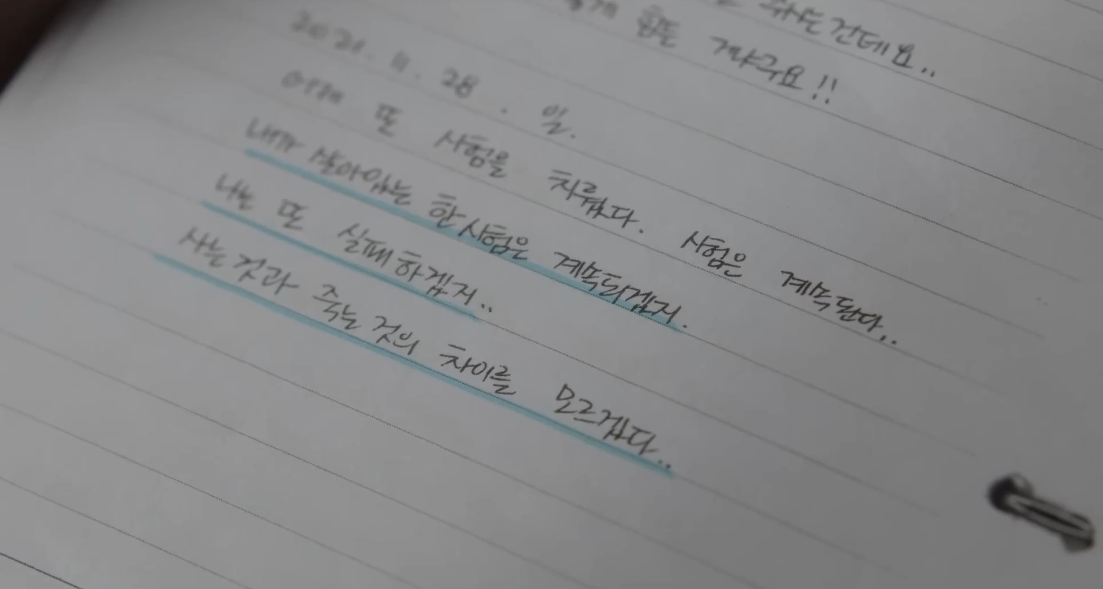 하는건데요..
힘든 거라구요!!
2021. 11. 28. 일.
어제 또 시험을 치뤘다. 시험은 계속된다..
내가 살아있는 한 시험은 계속되겠지.
나는 또 실패하겠지..
사는 것과 죽는 것의 차이를 모르겠다..